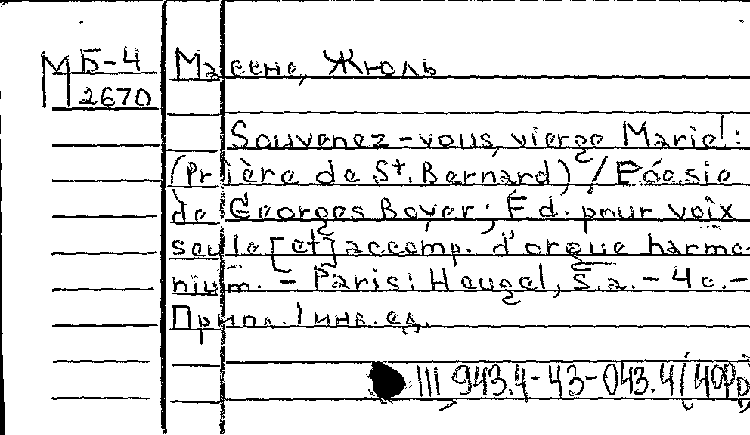 М Б-4
2670
Массне, Жюль
Souvenez-vous, vierge Marie!:
(Prière de St. Bernard) / Poésie
de Georges Boyer; Éd. pour voix
seule [et] accomp. d'orgue harmo-
nium. - Paris: Heugel, s.a. - 4 c. -
Прилл. 1 инв. ед.
III 943.4-43-043.4(4Фр)